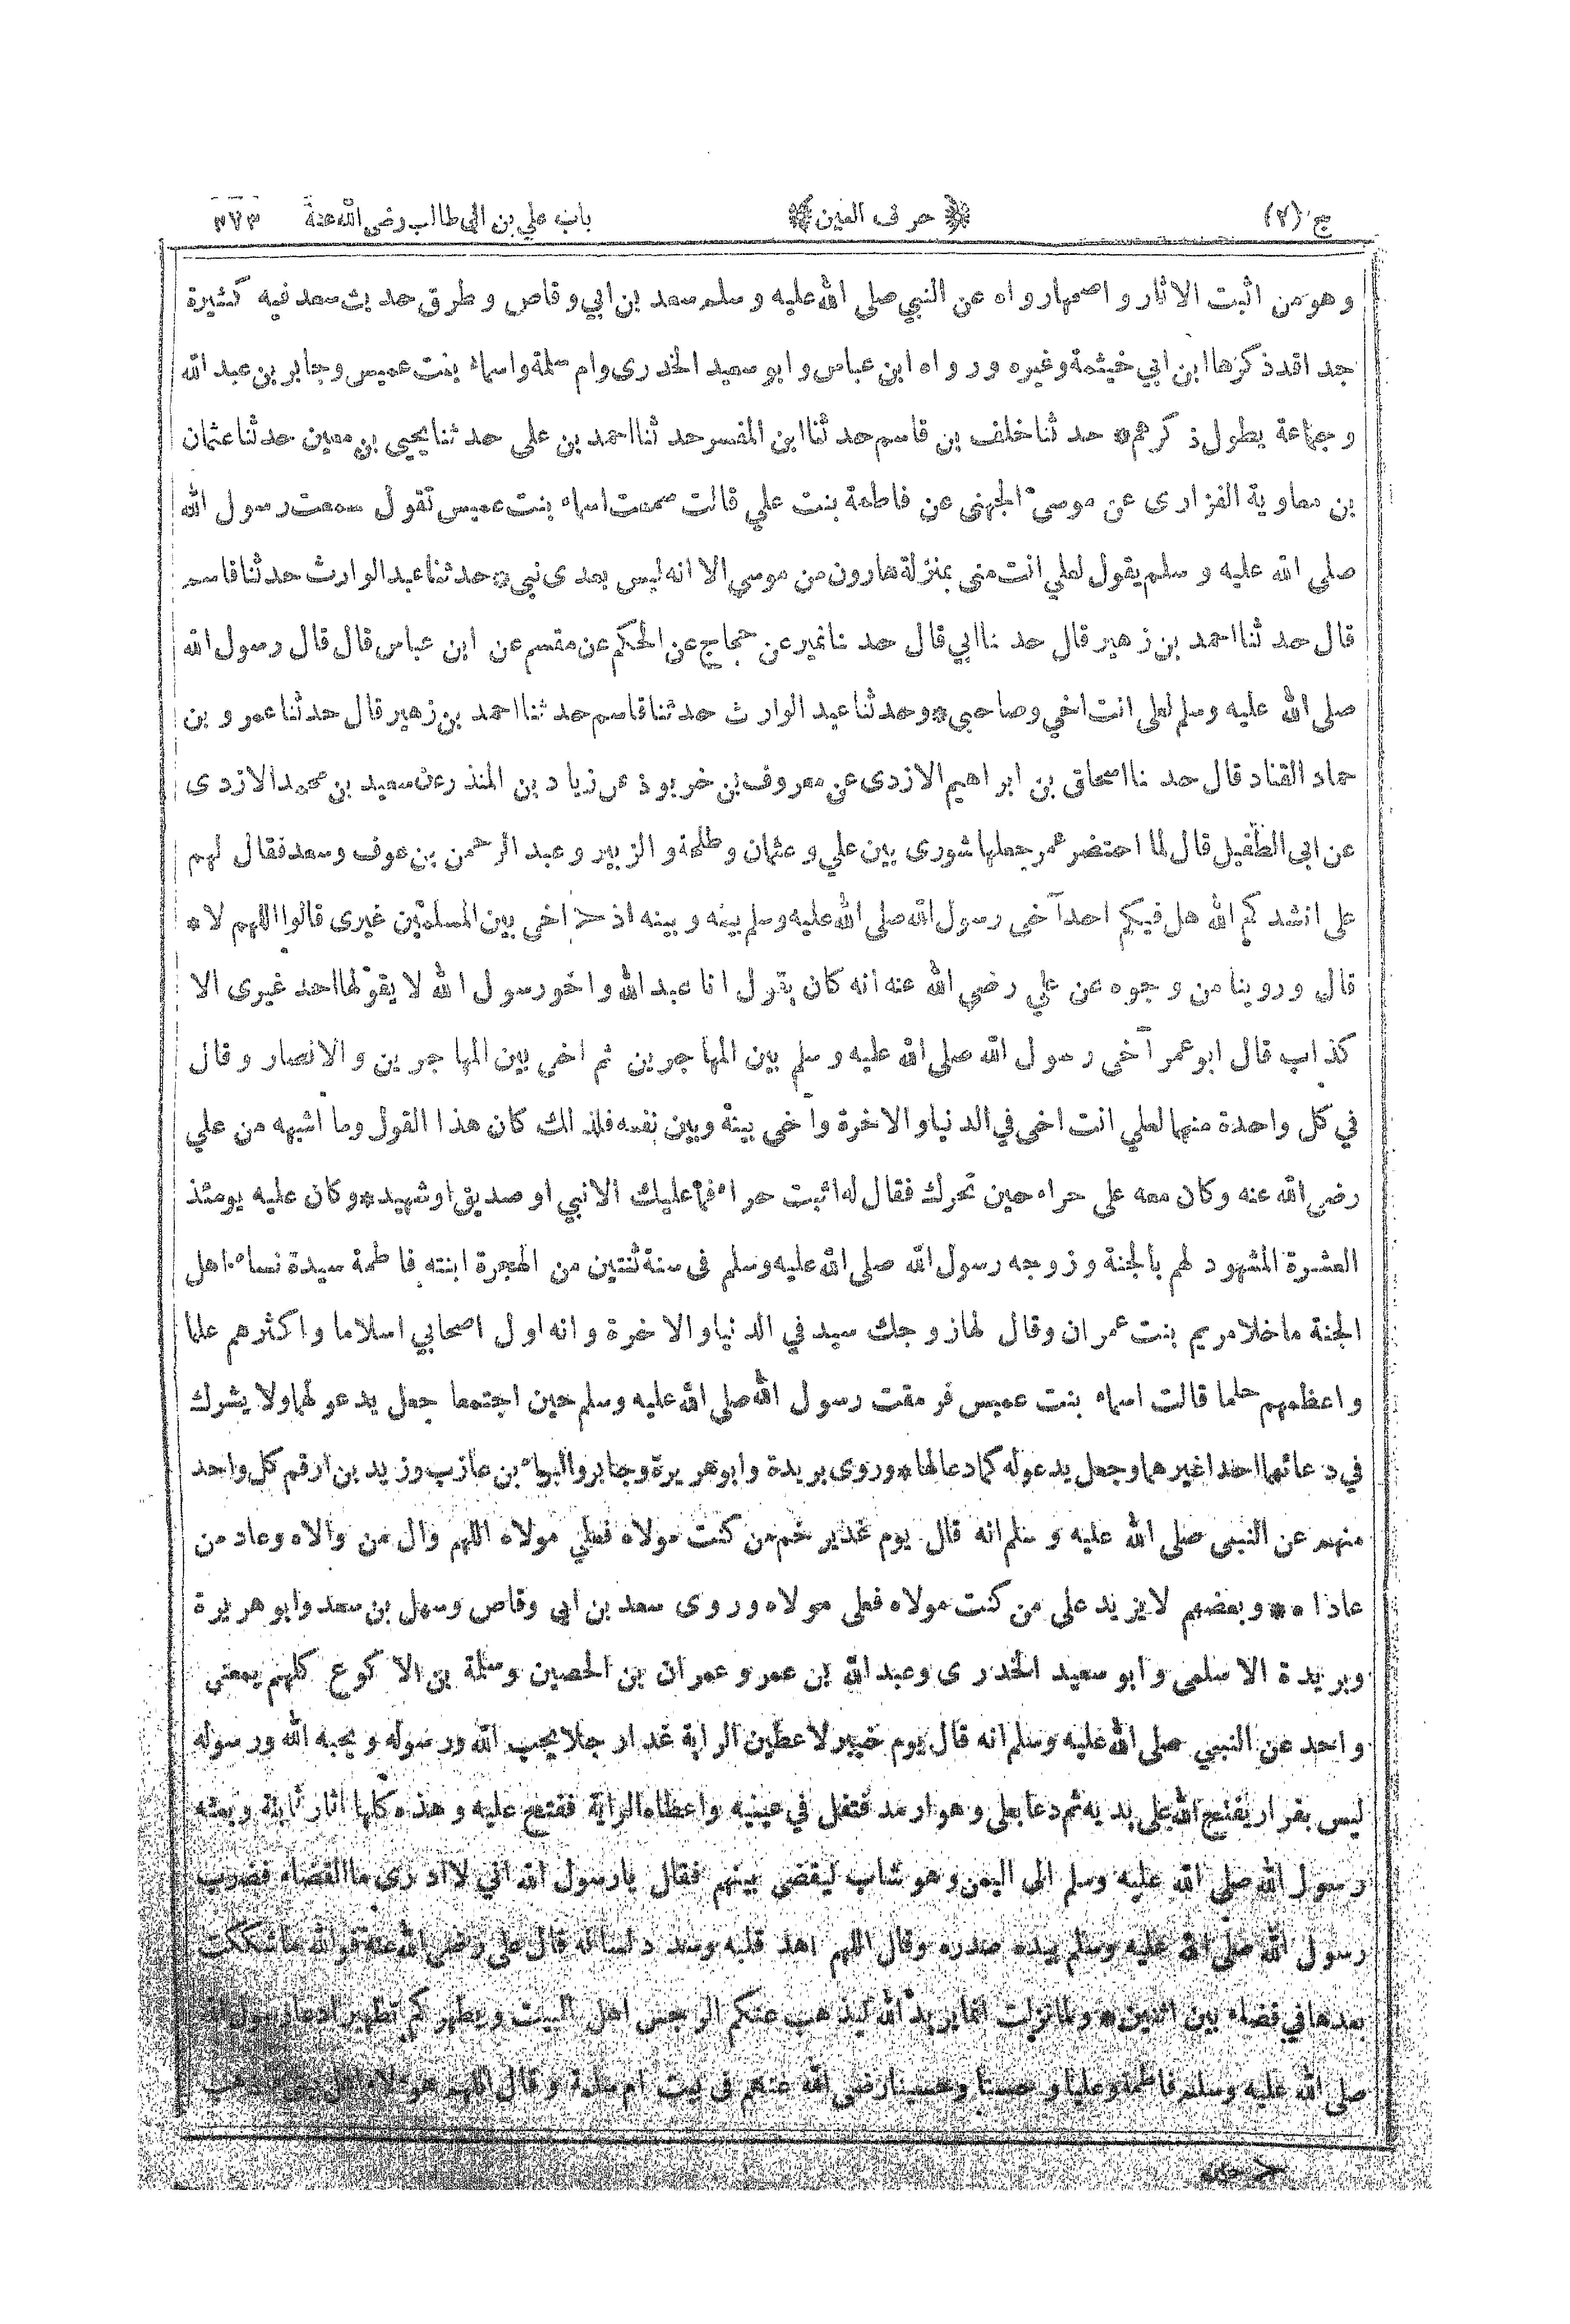 ج (٢) ﴿ حرف العين ﴾ باب علي بن ابي طالب رضى الله عنه ٤٧٣
وهو من اثبت الاثار و اصحها رواه عن النبي صلى الله عليه و سلم سعد بن ابي وقاص و طرق حديث سعد فيه كثيرة
جدا قد ذكرها ابن ابي خيثمة وغيره ورواه ابن عباس و ابو سعيد الخدرى وام سلمة واسماء بنت عميس وجابر بن عبد الله
و جماعة يطول ذكرهم* حدثنا خلف بن قاسم حدثنا ابن المفسر حدثنا احمد بن على حدثنا يحيى بن معين حدثنا عثمان
بن معاوية الفزارى عن موسى الجهنى عن فاطمة بنت علي قالت سمعت اسماء بنت عميس تقول سمعت رسول الله
صلى الله عليه و سلم يقول لعلي انت منى بمنزلة هارون من موسي الا انه ليس بعدى نبي* حدثنا عبد الوارث حدثنا قاسم
قال حدثنا احمد بن زهير قال حدثنا ابي قال حدثنا نمير عن حجاج عن الحكم عن مقسم عن ابن عباس قال قال رسول الله
صلى الله عليه وسلم لعلى انت اخي وصاحبي* وحدثنا عبد الوارث حدثنا قاسم حدثنا احمد بن زهير قال حدثنا عمرو بن
حماد القناد قال حدثنا اسحاق بن ابراهيم الازدى عن معروف بن خربوذ عن زياد بن المنذر عن سعيد بن محمد الازدى
عن ابى الطفيل قال لما احتضر عمر جعلها شورى بين علي و عثمان و طلحة و الزبير و عبد الرحمن بن عوف وسعد فقال لهم
على انشدكم الله هل فيكم احد آخى رسول الله صلى الله عليه وسلم بينه و بينه اذ > اخى بين المسلمين غيرى قالوا اللهم لا*
قال وروينا من وجوه عن علي رضي الله عنه انه كان يقول انا عبد الله واخو رسول الله لا يقولها احد غيرى الا
كذاب قال ابو عمر آخى رسول الله صلى الله عليه و سلم بين المهاجرين ثم اخى بين المهاجرين والانصار وقال
في كل واحدة منهما لعلي انت اخى في الدنيا والاخرة وآخى بينه وبين نفسه فلذلك كان هذا القول وما اشبهه من علي
رضى الله عنه وكان معه على حراء حين تحرك فقال له اثبت حراء فما عليك الا نبي او صديق او شهيد* وكان عليه يومئذ
العشرة المشهود لهم بالجنة و زوجه رسول الله صلى الله عليه وسلم فى سنة ثنتين من الهجرة ابنته فاطمة سيدة نساء اهل
الجنة ما خلا مريم بنت عمران وقال لها زوجك سيد في الدنيا والاخرة وانه اول اصحابي اسلاما واكثرهم علما
و اعظمهم حلما قالت اسماء بنت عميس فرمقت رسول الله صلى الله عليه وسلم حين اجتمعا جعل يدعو لهما ولا يشرك
في دعائهما احدا غيرهما وجعل يدعوله كما دعا لها* وروى بريدة وابو هريرة وجابر والبراء بن عازب وزيد بن ارقم كل واحد
منهم عن النبى صلى الله عليه و سلم انه قال يوم غدير خم من كنت مولاه فعلي مولاه اللهم وال من والاه وعاد من
عاداه** وبعضهم لا يزيد على من كنت مولاه فعلى مولاه وروى سعد بن ابي وقاص وسهل بن سعد وابو هريرة
وبريدة الاسلمى وابو سعيد الخدرى وعبد الله بن عمر وعمران بن الحصين وسلمة بن الاكوع كلهم بمعنى
واحد عن النبي صلى الله عليه وسلم انه قال يوم خيبر لاعطين الراية غدا رجلا يحب الله ورسوله ويحبه الله ورسوله
ليس بفرار يفتح الله على يديه ثم دعا بعلى وهو ارمد فتفل في عينيه واعطاه الراية ففتح عليه وهذه كلها اثار ثابتة وبعثه
رسول الله صلى الله عليه وسلم الى اليمن وهو شاب ليقضى بينهم فقال يا رسول الله اني لا ادرى ما القضاء فضرب
رسول الله صلى الله عليه وسلم بيده صدره وقال اللهم اهد قلبه وسدد لسانه قال على رضى الله عنه فوالله ما شككت
بعدها في قضاء بين اثنين* ولما نزلت انما يريد الله ليذهب عنكم الرجس اهل البيت ويطهركم تطهيرا دعا رسول الله
صلى الله عليه وسلم فاطمة وعليا وحسنا وحسينا رضى الله عنهم فى بيت ام سلمة وقال اللهم هؤلاء اهل